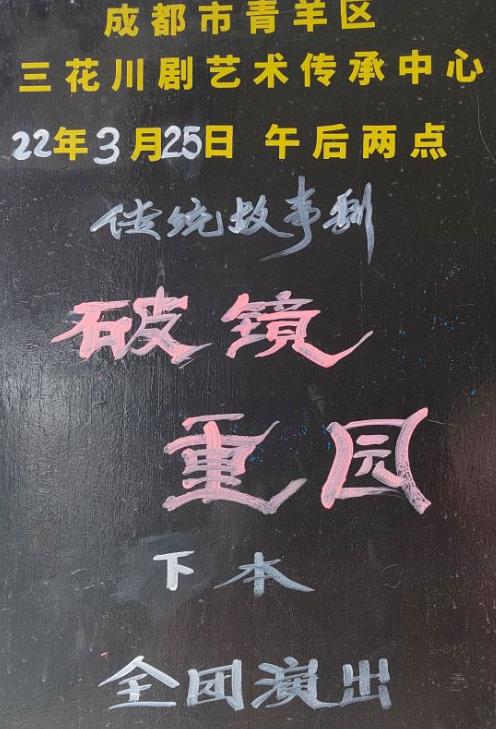 成都市青羊区
三花川剧艺术传承中心
22年3月25日 午后两点
传统故事剧
破镜
重园
下本
全团演出